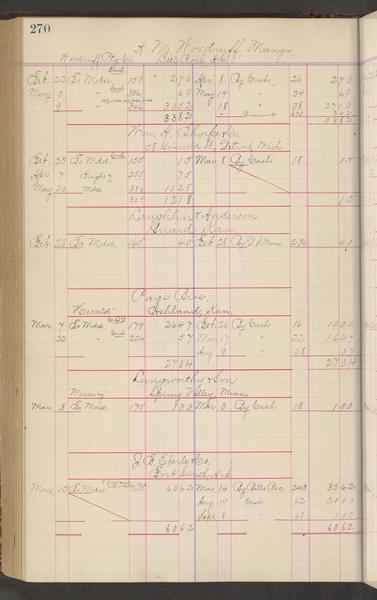 270
A. M. Woodruff Mangr
Woodruff Ptg Co. Little Rock Ark
Feb. 22 To Mdse. 150 270 Apr 8 By Cash 26 270
May 3 " 336 60 May 14 " 34 60
9 " 346 3052 18 " 38 2710
3382 " Discount 270 3382
Wm. A. & Co.
58 Griswold St. Detroit, Mich
Feb. 23 To Mdse. 155 15 Mar 8 By Cash 18 15
Apr 7 255 75
May 20 Mdse 380 1128
1218 15
Laughlin & Anderson
Girard Kan.
Feb. 28 To Mdse. 165 40 Feb. 28 By 236 40
Page Bros.
"Herald" Ashland, Kan,
Mar. 7 To Mdse 179 2647 Feb. 26 By Cash 16 1000
22 " 224 57 Mar 17 " 22 1647
Aug. 9 " 58 57
2704 2704
Langworthy & Son
Mercury Spring Valley, Minn.
Mar. 3 To Mdse. 175 Mar. 3 By Cash 18 100
J. F. Eberle & Co,
Fort Smith Ark
Mar. 15 To Mdse. 6062 Mar 14 By Bills Rec. 243 3562
Aug. 10 " Cash 62 2000
Sept. 8 " 68 500
6062 6062